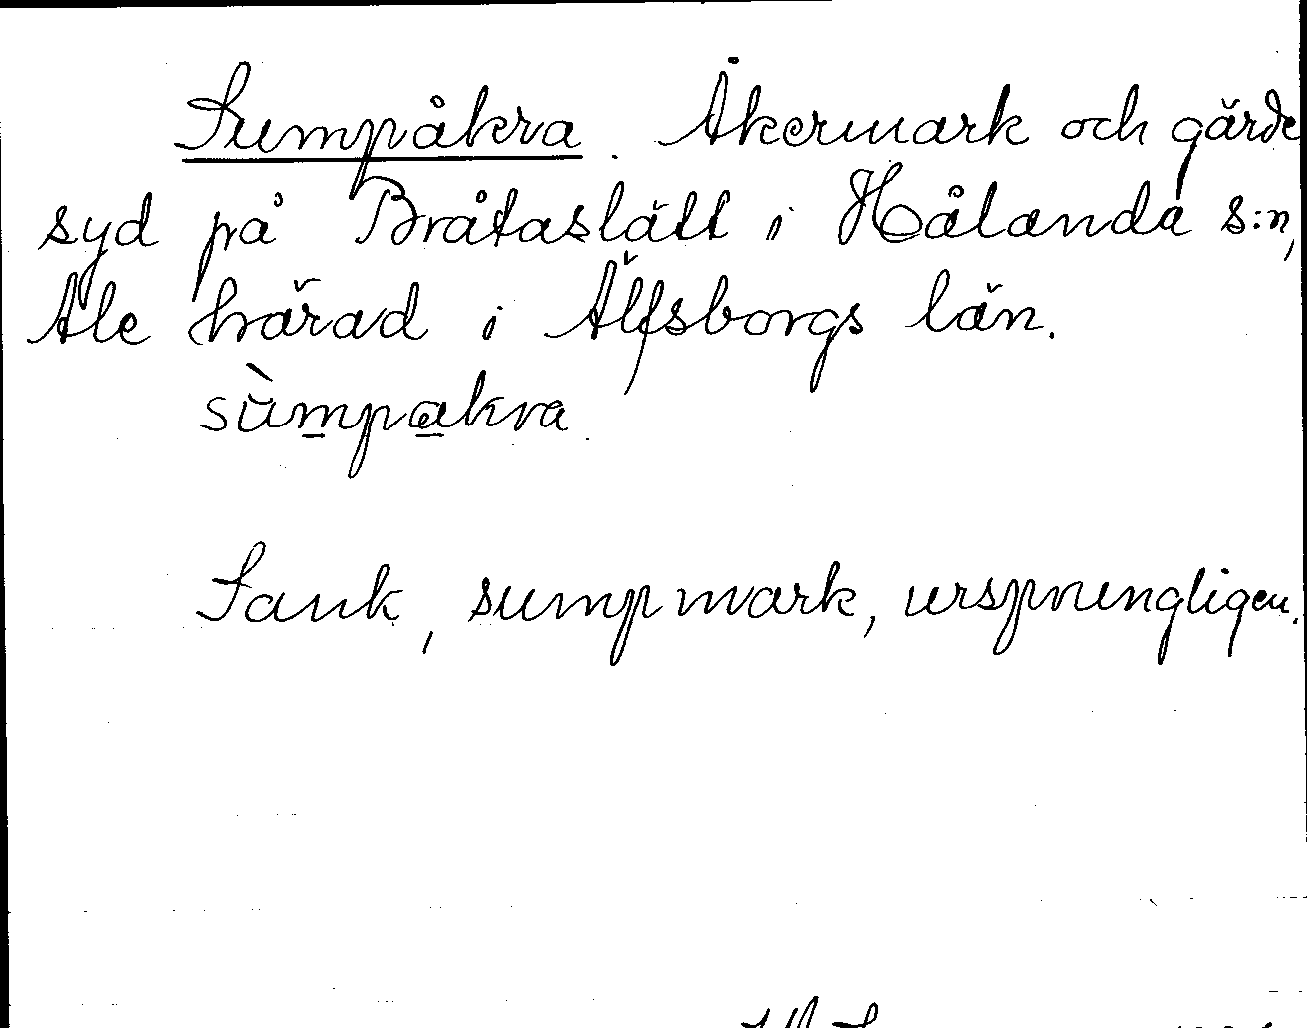 Sumpåkra. Åkermark och gärde
syd på Bråtaslätt i Hålanda s:n,
Ale härad i Älfsborgs län.
sùmpakra
Sank, sumpmark, ursprungligen.